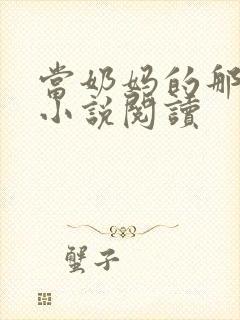 當奶妈的那
小說閱讀
蟹子